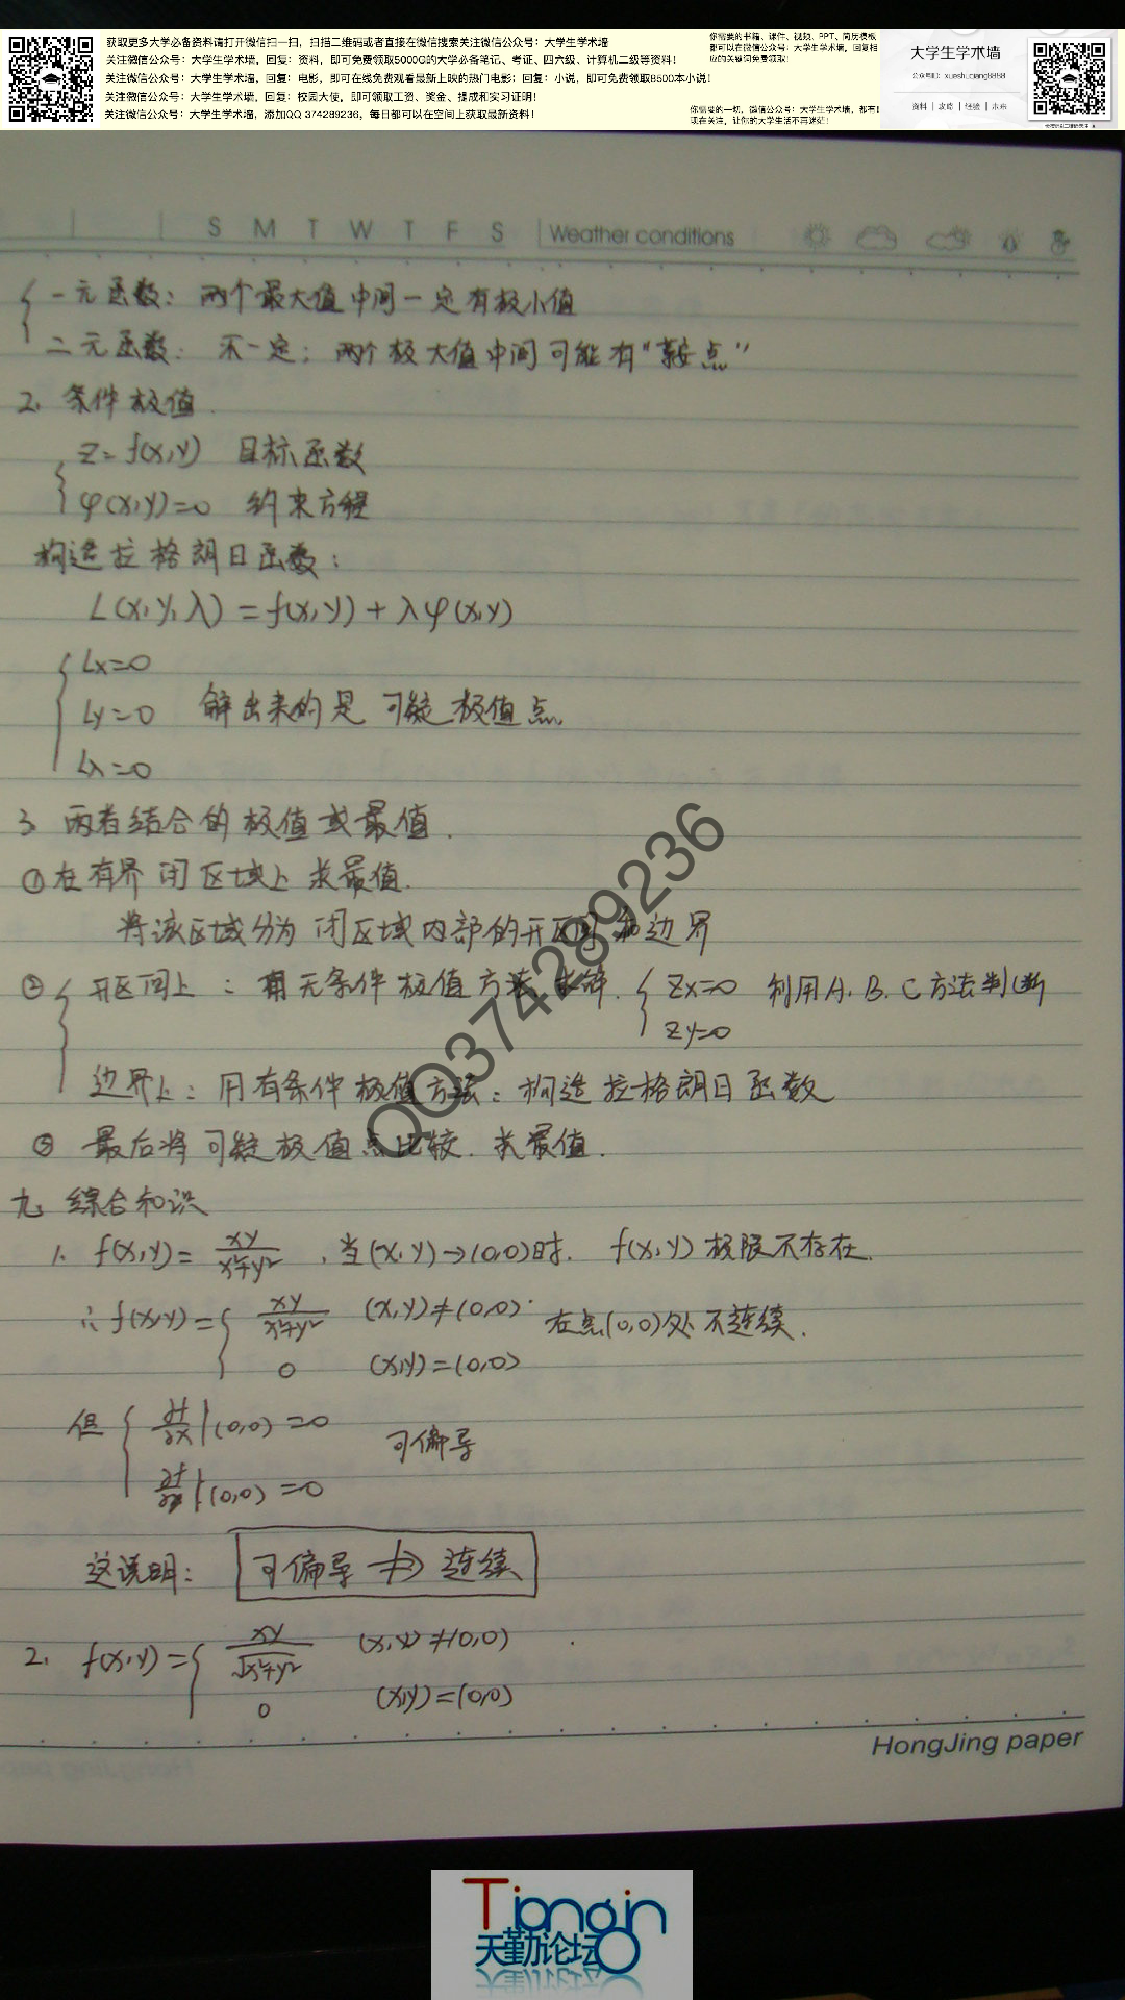 获取更多大学必备资料请打开微信扫一扫，扫描二维码或者直接在微信搜索关注微信公众号：大学生学术墙
关注微信公众号：大学生学术墙，回复：资料，即可免费领取5000G的大学必备笔记、考证、四六级、计算机二级等资料！
关注微信公众号：大学生学术墙，回复：电影，即可在线免费观看最新上映的热门电影；回复：小说，即可免费领取8500本小说！
关注微信公众号：大学生学术墙，回复：校园大使，即可领取工资、奖金、提成和实习证明！
关注微信公众号：大学生学术墙，添加QQ 374289236，每日都可以在空间上获取最新资料！
你需要的书籍、课件、视频、PPT、简历模板
都可以在微信公众号：大学生学术墙，回复相
应的关键词免费领取！
你需要的一切，微信公众号：大学生学术墙，都有！
现在关注，让你的大学生活不再迷茫！
大学生学术墙
公众号ID：xueshuqiang8888
资料 | 攻略 | 经验 | 未来
S M T W T F S Weather conditions
一元函数：两个最大值中间一定有极小值
二元函数：不一定；两个极大值中间可能有“鞍点”
2. 条件极值.
z=f(x,y) 目标函数
φ(x,y)=0 约束方程
构造拉格朗日函数：
L(x,y,λ)=f(x,y)+λφ(x,y)
Lx=0
Ly=0 解出来的是可疑极值点.
Lλ=0
3. 两者结合的极值或最值.
①在有界闭区域上求最值.
将该区域分为闭区域内部的开区间和边界
② 开区间上：用无条件极值方法求解. { Zx=0 利用A.B.C方法判断
Zy=0
边界上：用有条件极值方法：构造拉格朗日函数
③ 最后将可疑极值点比较.求最值.
九. 综合知识
1. f(x,y)= xy/(x²+y²) ,当(x,y)→(0,0)时. f(x,y)极限不存在.
∴ f(x,y)= { xy/(x²+y²) (x,y)≠(0,0) 在点(0,0)处不连续.
0 (x,y)=(0,0)
但 { ∂f/∂x|(0,0)=0 可偏导
∂f/∂y|(0,0)=0
这说明： 可偏导 ⇏ 连续
2. f(x,y)= { xy/√(x²+y²) (x,y)≠(0,0)
0 (x,y)=(0,0)
HongJing paper
QQ374289236
Tianqin
天勤论坛